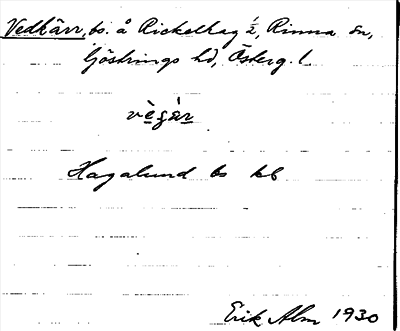 Vedkärr, bs. å Rickelhag ½, Rinna sn,
Göstrings hd, Österg. l.
vègàr
Hagalund bs kb
Erik Alm 1930